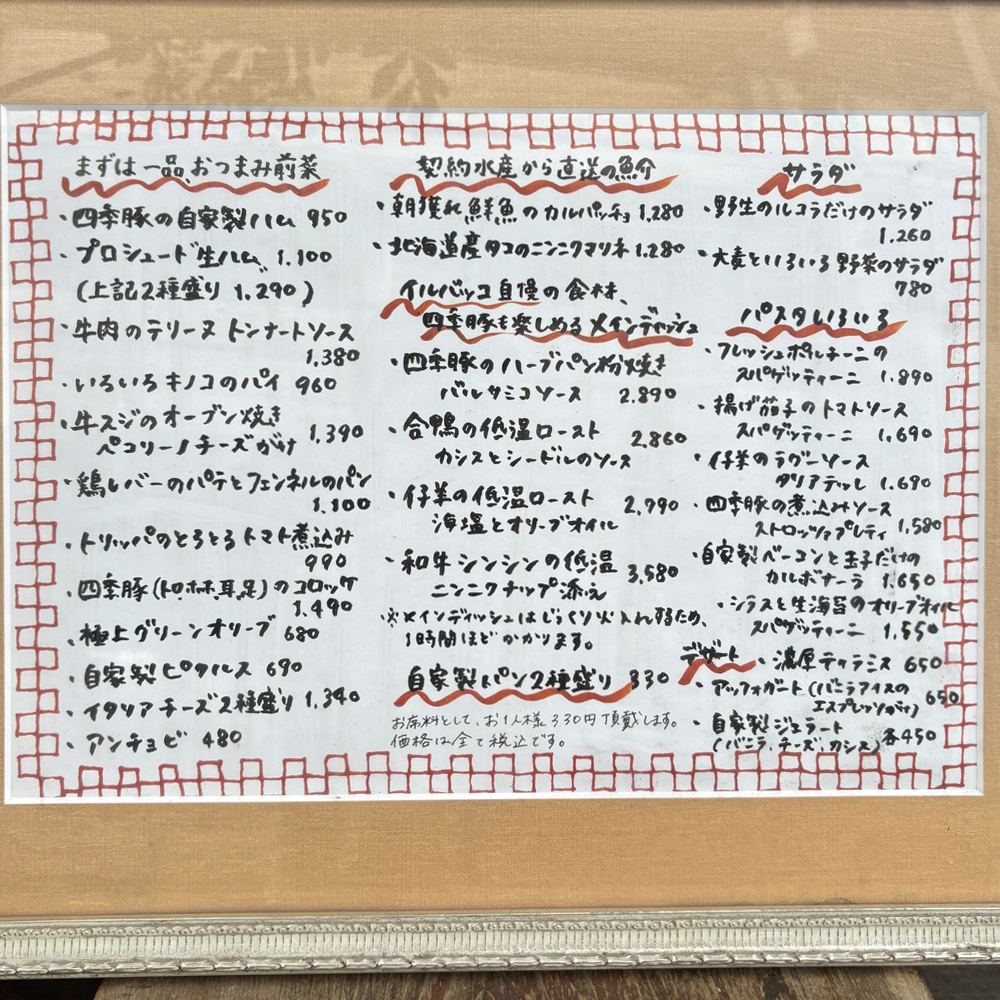 まずは一品、おつまみ前菜
・四季豚の自家製ハム 950
・プロシュート゛生ハム 1.100
(上記2種盛り 1.290)
・牛肉のテリーヌ トンナートソース
1,380
・いろいろキノコのパイ 960
・牛スジのオーブン焼き
ペコリーノチーズがけ 1,390
・鶏レバーのパテとフェンネルのパン
1.100
・トリッパのとろとろトマト煮込み
990
・四季豚(トロ、ホホ、耳、足)のコロッケ
1.490
・極上グリーンオリーブ 680
・自家製ピクルス 690
・イタリアチーズ2種盛り 1,340
・アンチョビ 480
契約水産から直送の魚介
・朝獲れ鮮魚のカルパッチョ 1,280
・北海道産タコのニンニクマリネ 1.280
イルバッコ自慢の食材、
四季豚も楽しめるメインディッシュ
・四季豚のハーブパン粉焼き
バルサミコソース 2.890
・合鴨の低温ロースト 2,860
カシスとシードルのソース
・仔羊の低温ロースト 2,790
海塩とオリーブオイル
・和牛シンシンの低温 3,580
ニンニクチップ添え
※メインディッシュはじっくり火入れするため、
1時間ほどかかります。
自家製パン2種盛り 330
お席料として、お1人様330円頂戴します。
価格は全て税込です。
サラダ
・野生のルコラだけのサラダ
1.260
・大麦といろいろ野菜のサラダ
780
パスタいろいろ
・フレッシュポルチーニの
スパゲッティーニ 1.890
・揚げ茄子のトマトソース
スパゲッティーニ 1,690
・仔羊のラグーソース
タリアテッレ 1.690
・四季豚の煮込みソース
ストロッツァプレティ 1,580
・自家製ベーコンと玉子だけの
カルボナーラ 1.650
・シラスと生海苔のオリーブオイル
スパゲッティーニ 1,550
デザート ・濃厚ティラミス 650
・アッフォガート(バニラアイスの
エスプレッソがけ) 650
・自家製ジェラート
(バニラ、チーズ、カシス) 各450